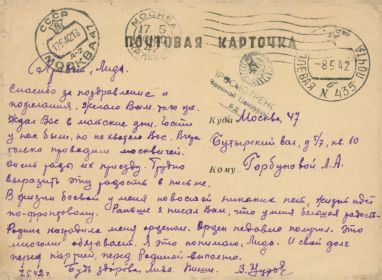 ПОЧТОВАЯ КАРТОЧКА
СССР
МОСКВА 47
МОСКВА
8 5 42
N 435
ПРОСМОТРЕНО
Военной Цензурой
Здравствуй, Лида.
Спасибо за поздравление и
пожелания. Желаю Вам того же.
Ждал Вас в майские дни. Гости
у нас были, но не хватало Вас. Вчера
только проводили москвичей.
Очень рады их приезду. Трудно
выразить эту радость в письме.
В жизни боевой у меня новостей никаких нет, жизнь идет
по-фронтовому. Раньше я писал Вам, что у меня большая радость
Родина наградила меня орденом. Орден недавно получил. Это
многому обязывает. Я это понимаю, Лида. И свой долг
перед партией, перед Родиной выполню.
Будь здорова, Лида. Пиши.
Куда Москва, 47
Бутырский вал, д. кв. 10
Кому Горбуновой Л.А.